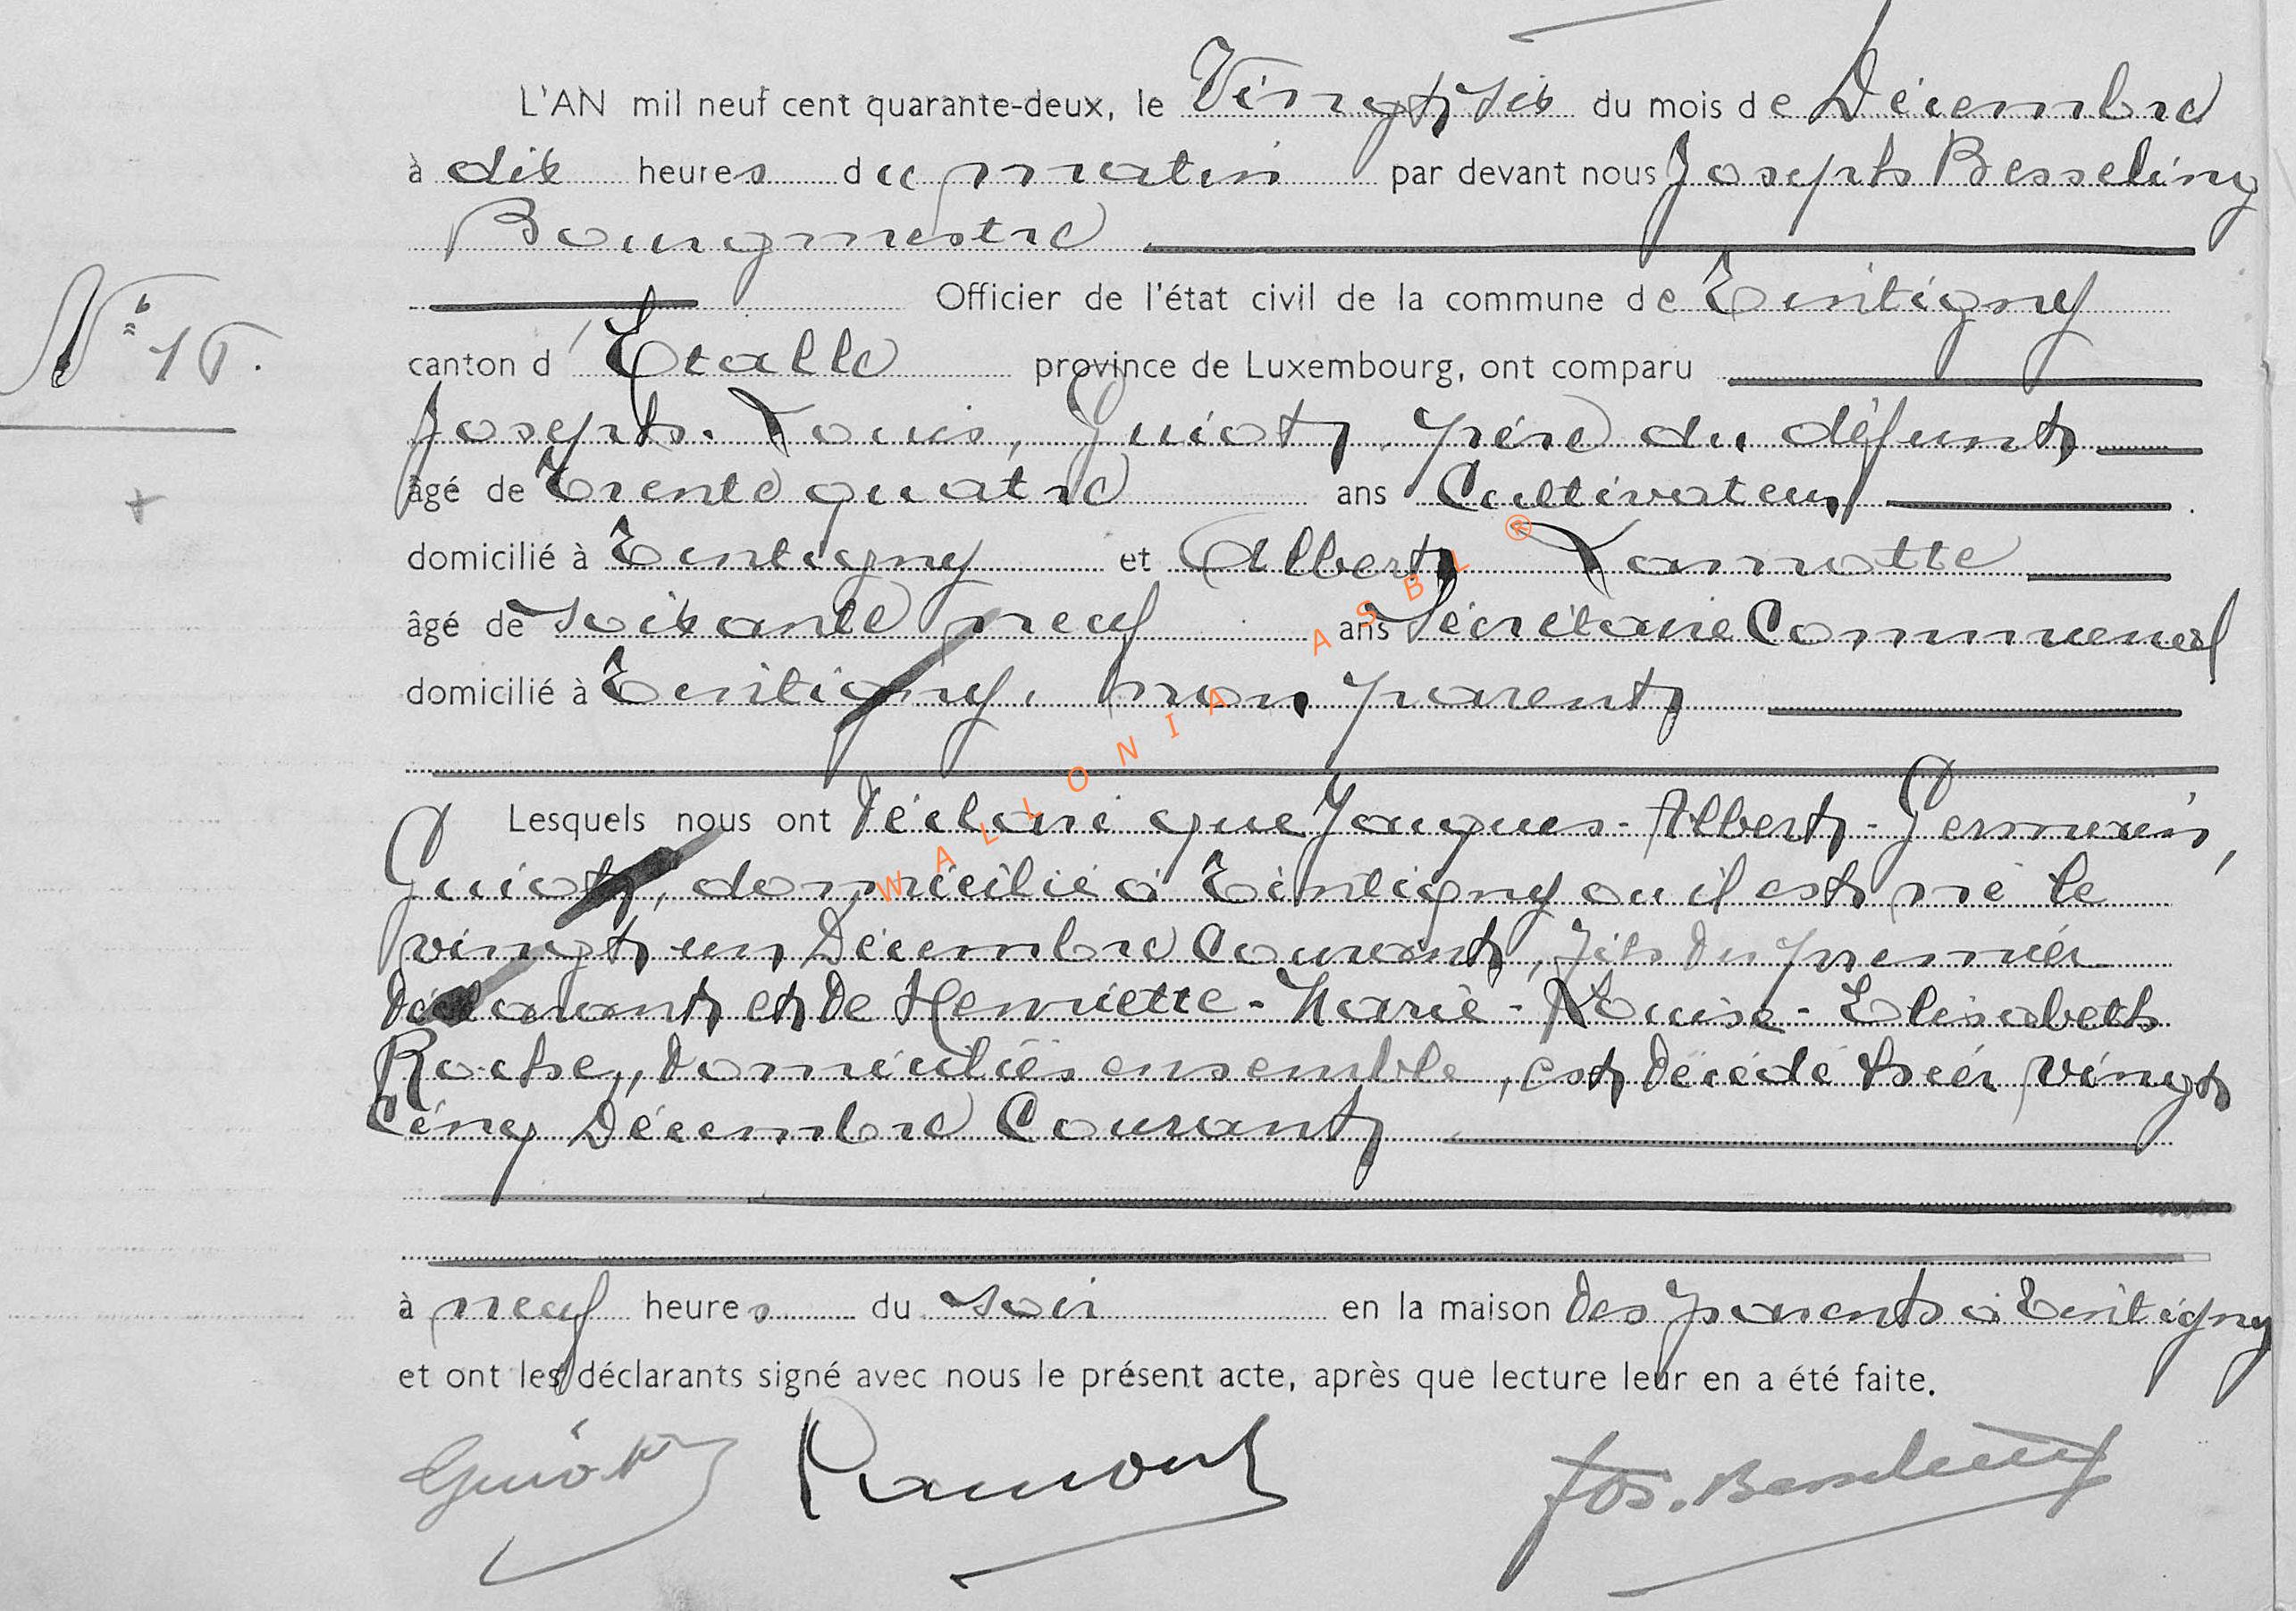 L'AN mil neuf cent quarante-deux, le Vingt six du mois de Décembre
à dix heures du matin par devant nous Joseph Besseling
Bourgmestre
Officier de l'état civil de la commune de Tintigny
canton d'Etalle province de Luxembourg, ont comparu
Joseph-Louis, Guiot, père du défunt
âgé de Trente quatre ans Cultivateur
domicilié à Tintigny et Albert Lamotte
âgé de soixante neuf ans Sécrétaire Communal
domicilié à Tintigny, non parent
Lesquels nous ont déclaré que Jacques-Albert-Germain,
Guiot, domicilié à Tintigny ou il est né le
vingt un Décembre Courant, fils du premier
déclarant et de Henriette-Marie-Louise-Elisabeth
Roche, domiciliés ensemble, est décédé hier vingt
Cinq Décembre Courant
à neuf heures du soir en la maison des parents à Tintigny
et ont les déclarants signé avec nous le présent acte, après que lecture leur en a été faite.
Guiot Jos. Besseling
N° 16.
WALLONIA ASBL ®